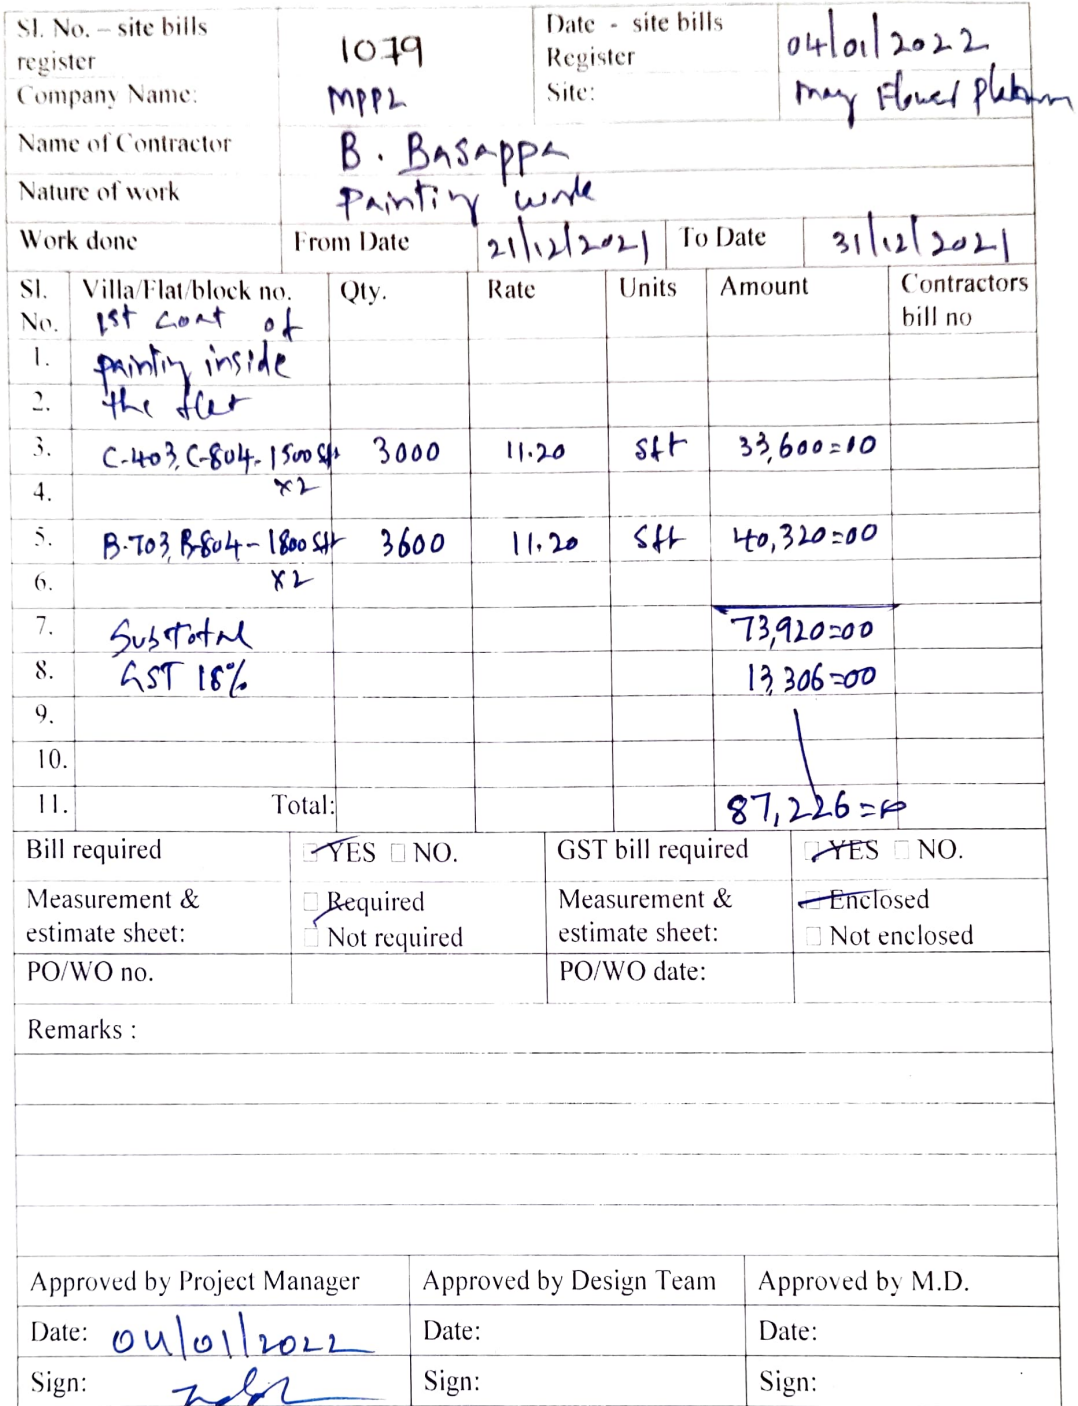 Sl. No. – site bills register 1079 Date - site bills Register 04/01/2022
Company Name: MPPL Site: may Flower Platinum
Name of Contractor B. Basappa
Nature of work Painting work
Work done From Date 21/12/2021 To Date 31/12/2021
Sl. No. Villa/Flat/block no. Qty. Rate Units Amount Contractors bill no
1st coat of
1. painting inside
2. the flat
3. C-403, C-804 - 1500 sft 3000 11.20 sft 33,600=00
4. x2
5. B-703, B-804 - 1800 sft 3600 11.20 sft 40,320=00
6. x2
7. Sub Total 73,920=00
8. GST 18% 13,306=00
9.
10.
11. Total: 87,226=00
Bill required YES NO. GST bill required YES NO.
Measurement & estimate sheet: Required Not required Measurement & estimate sheet: Enclosed Not enclosed
PO/WO no. PO/WO date:
Remarks :
Approved by Project Manager Approved by Design Team Approved by M.D.
Date: 04/01/2022 Date: Date:
Sign: Sign: Sign: